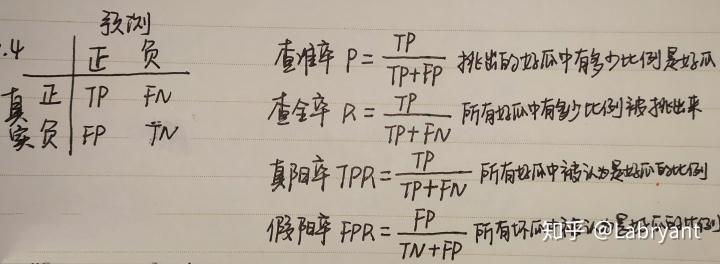 预测
.4 正 负
真实 正 TP FN
负 FP TN
查准率 P = TP/(TP+FP) 挑出的好瓜中有多少比例是好瓜
查全率 R = TP/(TP+FN) 所有好瓜中有多少比例被挑出来
真阳率 TPR = TP/(TP+FN) 所有好瓜中被认为是好瓜的比例
假阳率 FPR = FP/(TN+FP) 所有坏瓜中被认为是好瓜的比例
知乎 @Labryant